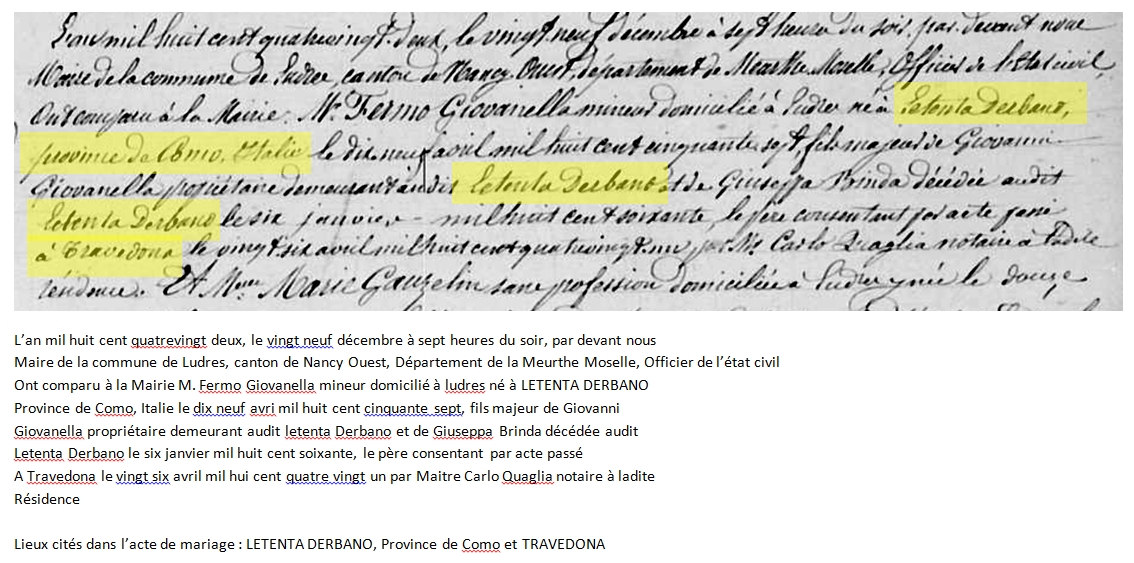 L'an mil huit cent quatrevingt deux, le vingt neuf décembre à sept heures du soir, par devant nous
Maire de la commune de Ludres, canton de Nancy Ouest, département de Meurthe Moselle, Officier de l'état civil,
Ont comparu à la Mairie. Mr. Fermo Giovanella mineur domicilié à Ludres né à Letenta Derbano,
province de Como, Italie le dix neuf avril mil huit cent cinquante sept, fils majeur de Giovanni
Giovanella propriétaire demeurant audit Letenta Derbano et de Giuseppa Brinda décédée audit
Letenta Derbano le six janvier - mil huit cent soixante, le père consentant par acte passé
à Travedona le vingt six avril mil huit cent quatrevingt un par Mr. Carlo Quaglia notaire à ladite
résidence. Et Melle Marie Gauzelin sans profession domiciliée à Ludres y née le douze
L'an mil huit cent quatrevingt deux, le vingt neuf décembre à sept heures du soir, par devant nous
Maire de la commune de Ludres, canton de Nancy Ouest, Département de la Meurthe Moselle, Officier de l'état civil
Ont comparu à la Mairie M. Fermo Giovanella mineur domicilié à ludres né à LETENTA DERBANO
Province de Como, Italie le dix neuf avri mil huit cent cinquante sept, fils majeur de Giovanni
Giovanella propriétaire demeurant audit letenta Derbano et de Giuseppa Brinda décédée audit
Letenta Derbano le six janvier mil huit cent soixante, le père consentant par acte passé
A Travedona le vingt six avril mil hui cent quatre vingt un par Maitre Carlo Quaglia notaire à ladite
Résidence
Lieux cités dans l'acte de mariage : LETENTA DERBANO, Province de Como et TRAVEDONA